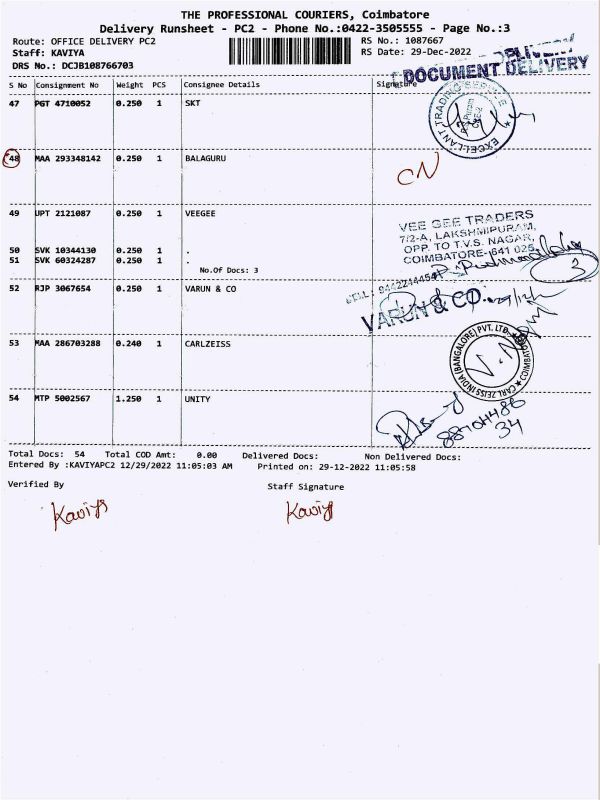 THE PROFESSIONAL COURIERS, Coimbatore
Delivery Runsheet - PC2 - Phone No.:0422-3505555 - Page No.:3
Route: OFFICE DELIVERY PC2
RS No.: 1087667
Staff: KAVIYA
RS Date: 29-Dec-2022
DRS No.: DCJB108766703
DOCUMENT DELIVERY
S No Consignment No Weight PCS Consignee Details Signature
47 PGT 4710052 0.250 1 SKT
EXCELLANT TRADING SERVICE
48 MAA 293348142 0.250 1 BALAGURU
CN
49 UPT 2121087 0.250 1 VEEGEE
VEE GEE TRADERS
7/2-A, LAKSHMIPURAM,
OPP. TO T.V.S. NAGAR,
COIMBATORE-641 025
50 SVK 10344130 0.250 1 .
51 SVK 60324287 0.250 1 .
No.Of Docs: 3
3
52 RJP 3067654 0.250 1 VARUN & CO
VARUN & CO
53 MAA 286703288 0.240 1 CARLZEISS
CARL ZEISS INDIA (BANGALORE) PVT. LTD.
54 MTP 5002567 1.250 1 UNITY
34
Total Docs: 54 Total COD Amt: 0.00 Delivered Docs: Non Delivered Docs:
Entered By :KAVIYAPC2 12/29/2022 11:05:03 AM Printed on: 29-12-2022 11:05:58
Verified By Staff Signature
Kaviya Kaviya